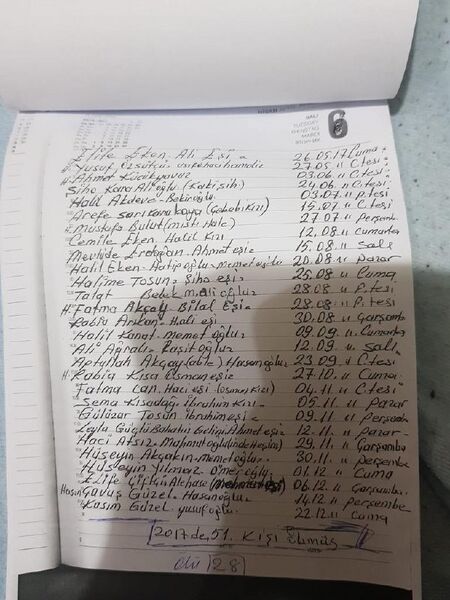 SALI
TUESDAY
DIENSTAG
MARDI
6
Elife Eken. Ali Eşi = 26.05.17 Cuma
Yusuf özsütçü. 27.05 " C.tesi
# Ahmet Küçükyavuz 03.06 " C.tesi
Siho Kara Alioğlu (Kekişih) 24.06. " C.tesi
Halil Akdeve - Bekiroğlu 03.07. " P.tesi
Arefe Sarıkarakaya (Gababı Kızı) 15.07. " C.tesi
# Mustafa Bulut (Mısti Hale) 27.07 " Perşembe
Cemile Eken Halil Kızı 12.08 " Cumartesi
Mevlide Erdoğan Ahmet eşi = 15.08 " Salı
Halil Eken - Hatipoğlu - Memet oğlu 20.08 " Pazar
Halime Tosun = Siho eşi = 25.08 " Cuma
Talat Bebek mali oğlu = 28.08 " P.tesi
# Fatma Akçay Bilal Eşi = 28.08 " P.tesi
Rabia Arıkan = Hali eşi 30.08 " Çarşamba
Halil Kanat - memet oğlu = 09.09 " Cumartesi
Ali Ağralı - Raşitoğlu = 12.09 " Salı
Beytullah Akçay (able) Hasanoğlu = 23.09 " C.tesi
# Rabia Kısa Osman eşi = 27.10 " Cuma
Fatma Can Hacı eşi (Osman Kızı) 04.11 " C.tesi
Sema Kısadağı İbrahim Kızı = 05.11 " Pazar
Gülüzar Tosun İbrahim eşi = 09.11 " Perşembe
Leyla Güçlü Ahmet eşi = 12.11 " Pazar
Hacı Atsız - Mahmut oğlu 29.11 " Çarşamba
Hüseyin Akçakın - Memetoğlu = 30.11 " Perşembe
Hüseyin Yılmaz Ömer oğlu 01.12 " Cuma
Elife Çiftçi 06.12 " Çarşamba
Hasan Yavuş Güzel - Hasanoğlu 14.12 " Perşembe
Kasım Güzel - Yusufoğlu = 22.12 " Cuma
2017 de, 51. Kişi ölmüş
ölü 28